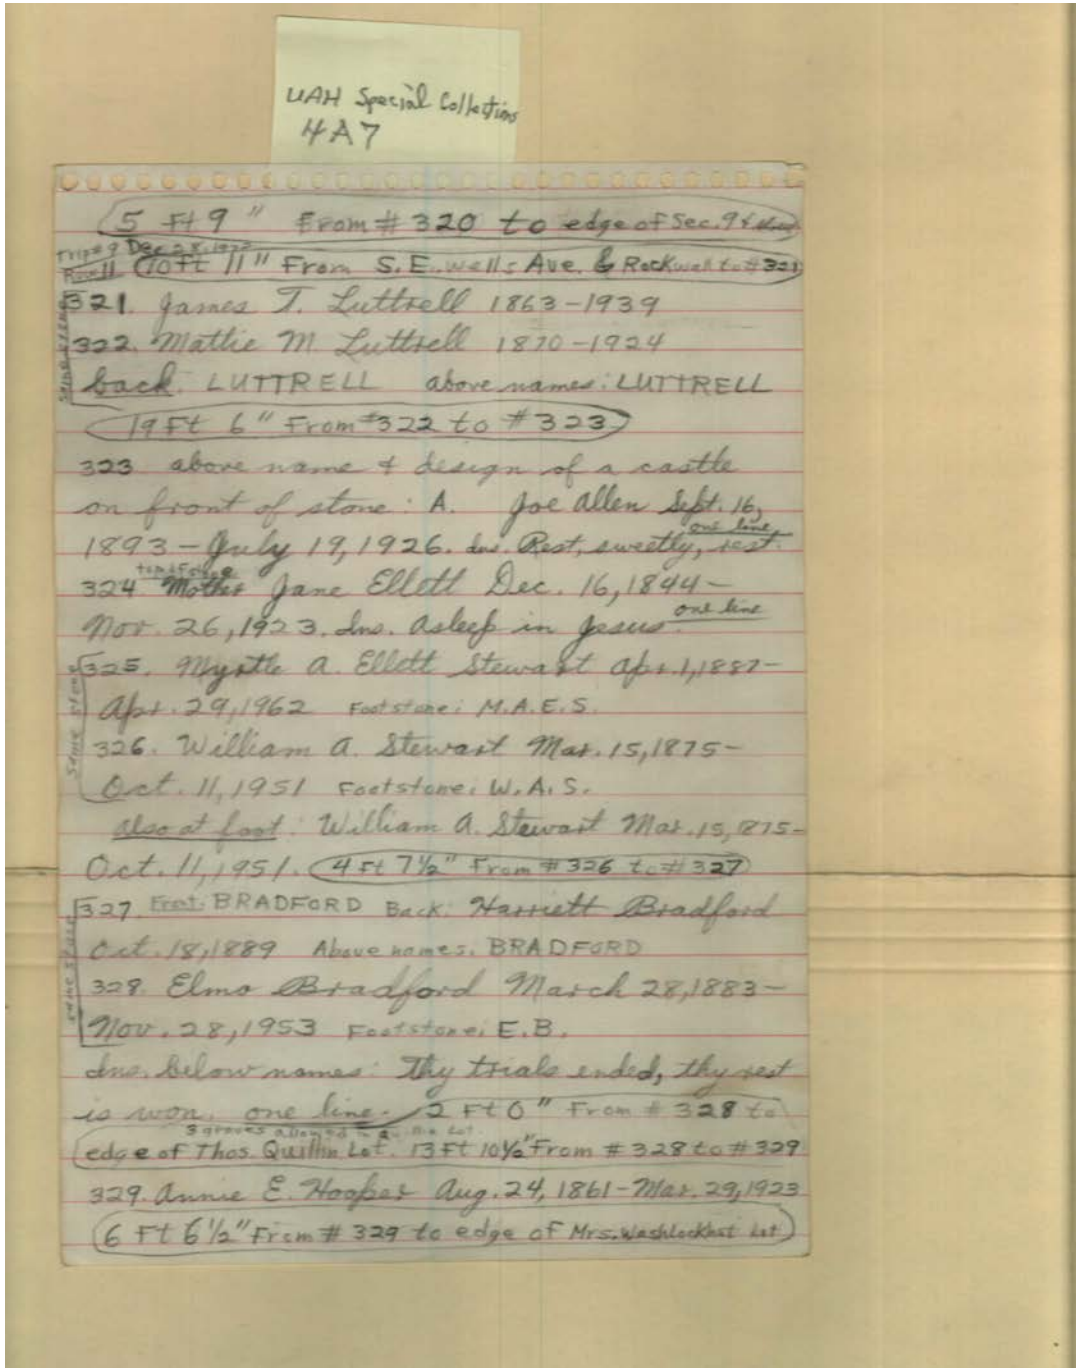 UAH Special Collections
4A7
5 Ft 9" From # 320 to edge of Sec. 9 &
Trip # 9 Dec 28, 1977
Row 11 10 Ft 11" From S.E. Wells Ave. & Rockwell to # 321
321. James T. Luttrell 1863-1939
322. Mattie M. Luttrell 1870-1924
same stone
back. LUTTRELL above names: LUTTRELL
19 Ft 6" From #322 to #323
323 above name & design of a castle
on front of stone: A. Joe Allen Sept. 16,
1893 - July 19, 1926. Ins. Rest, sweetly, rest. one line
324 Mother Jane Ellett Dec. 16, 1844 -
Nov. 26, 1923. Ins. Asleep in Jesus. one line
325. Myrtle A. Ellett Stewart Apr. 1, 1887 -
Apr. 29, 1962 Footstone: M.A.E.S.
same stone
326. William A. Stewart Mar. 15, 1875 -
Oct. 11, 1951 Footstone: W.A.S.
also at foot: William A. Stewart Mar. 15, 1875 -
Oct. 11, 1951. 4 Ft 7½" From # 326 to # 327
327. Front: BRADFORD Back: Harriett Bradford
Oct. 18, 1889 Above names: BRADFORD
same stone
328. Elmo Bradford March 28, 1883 -
Nov. 28, 1953 Footstone: E.B.
Ins. below names: Thy trials ended, thy rest
is won. one line. 2 Ft 0" From # 328 to
3 graves allowed in Lot
edge of Thos. Quillin Lot. 13 Ft 10½" From # 328 to # 329
329. Annie E. Hooper Aug. 24, 1861 - Mar. 29, 1923
6 Ft 6½" From # 329 to edge of Mrs. Lot